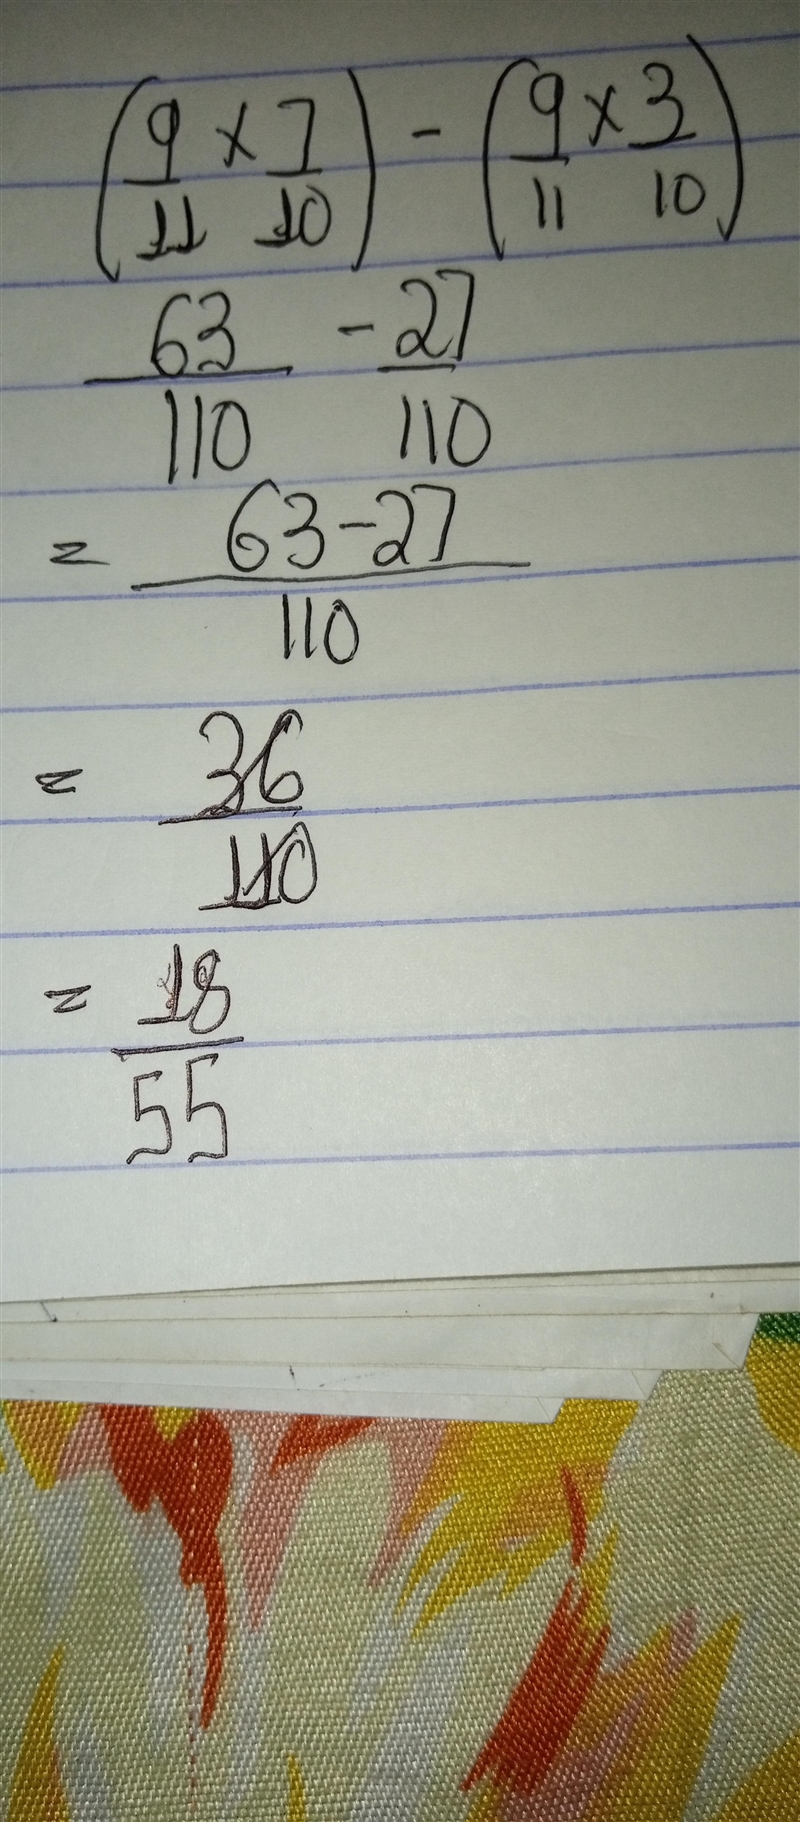 (9/11 × 7/10) - (9/11 × 3/10)
63/110 - 27/110
= 63-27/110
= 36/110
= 18/55